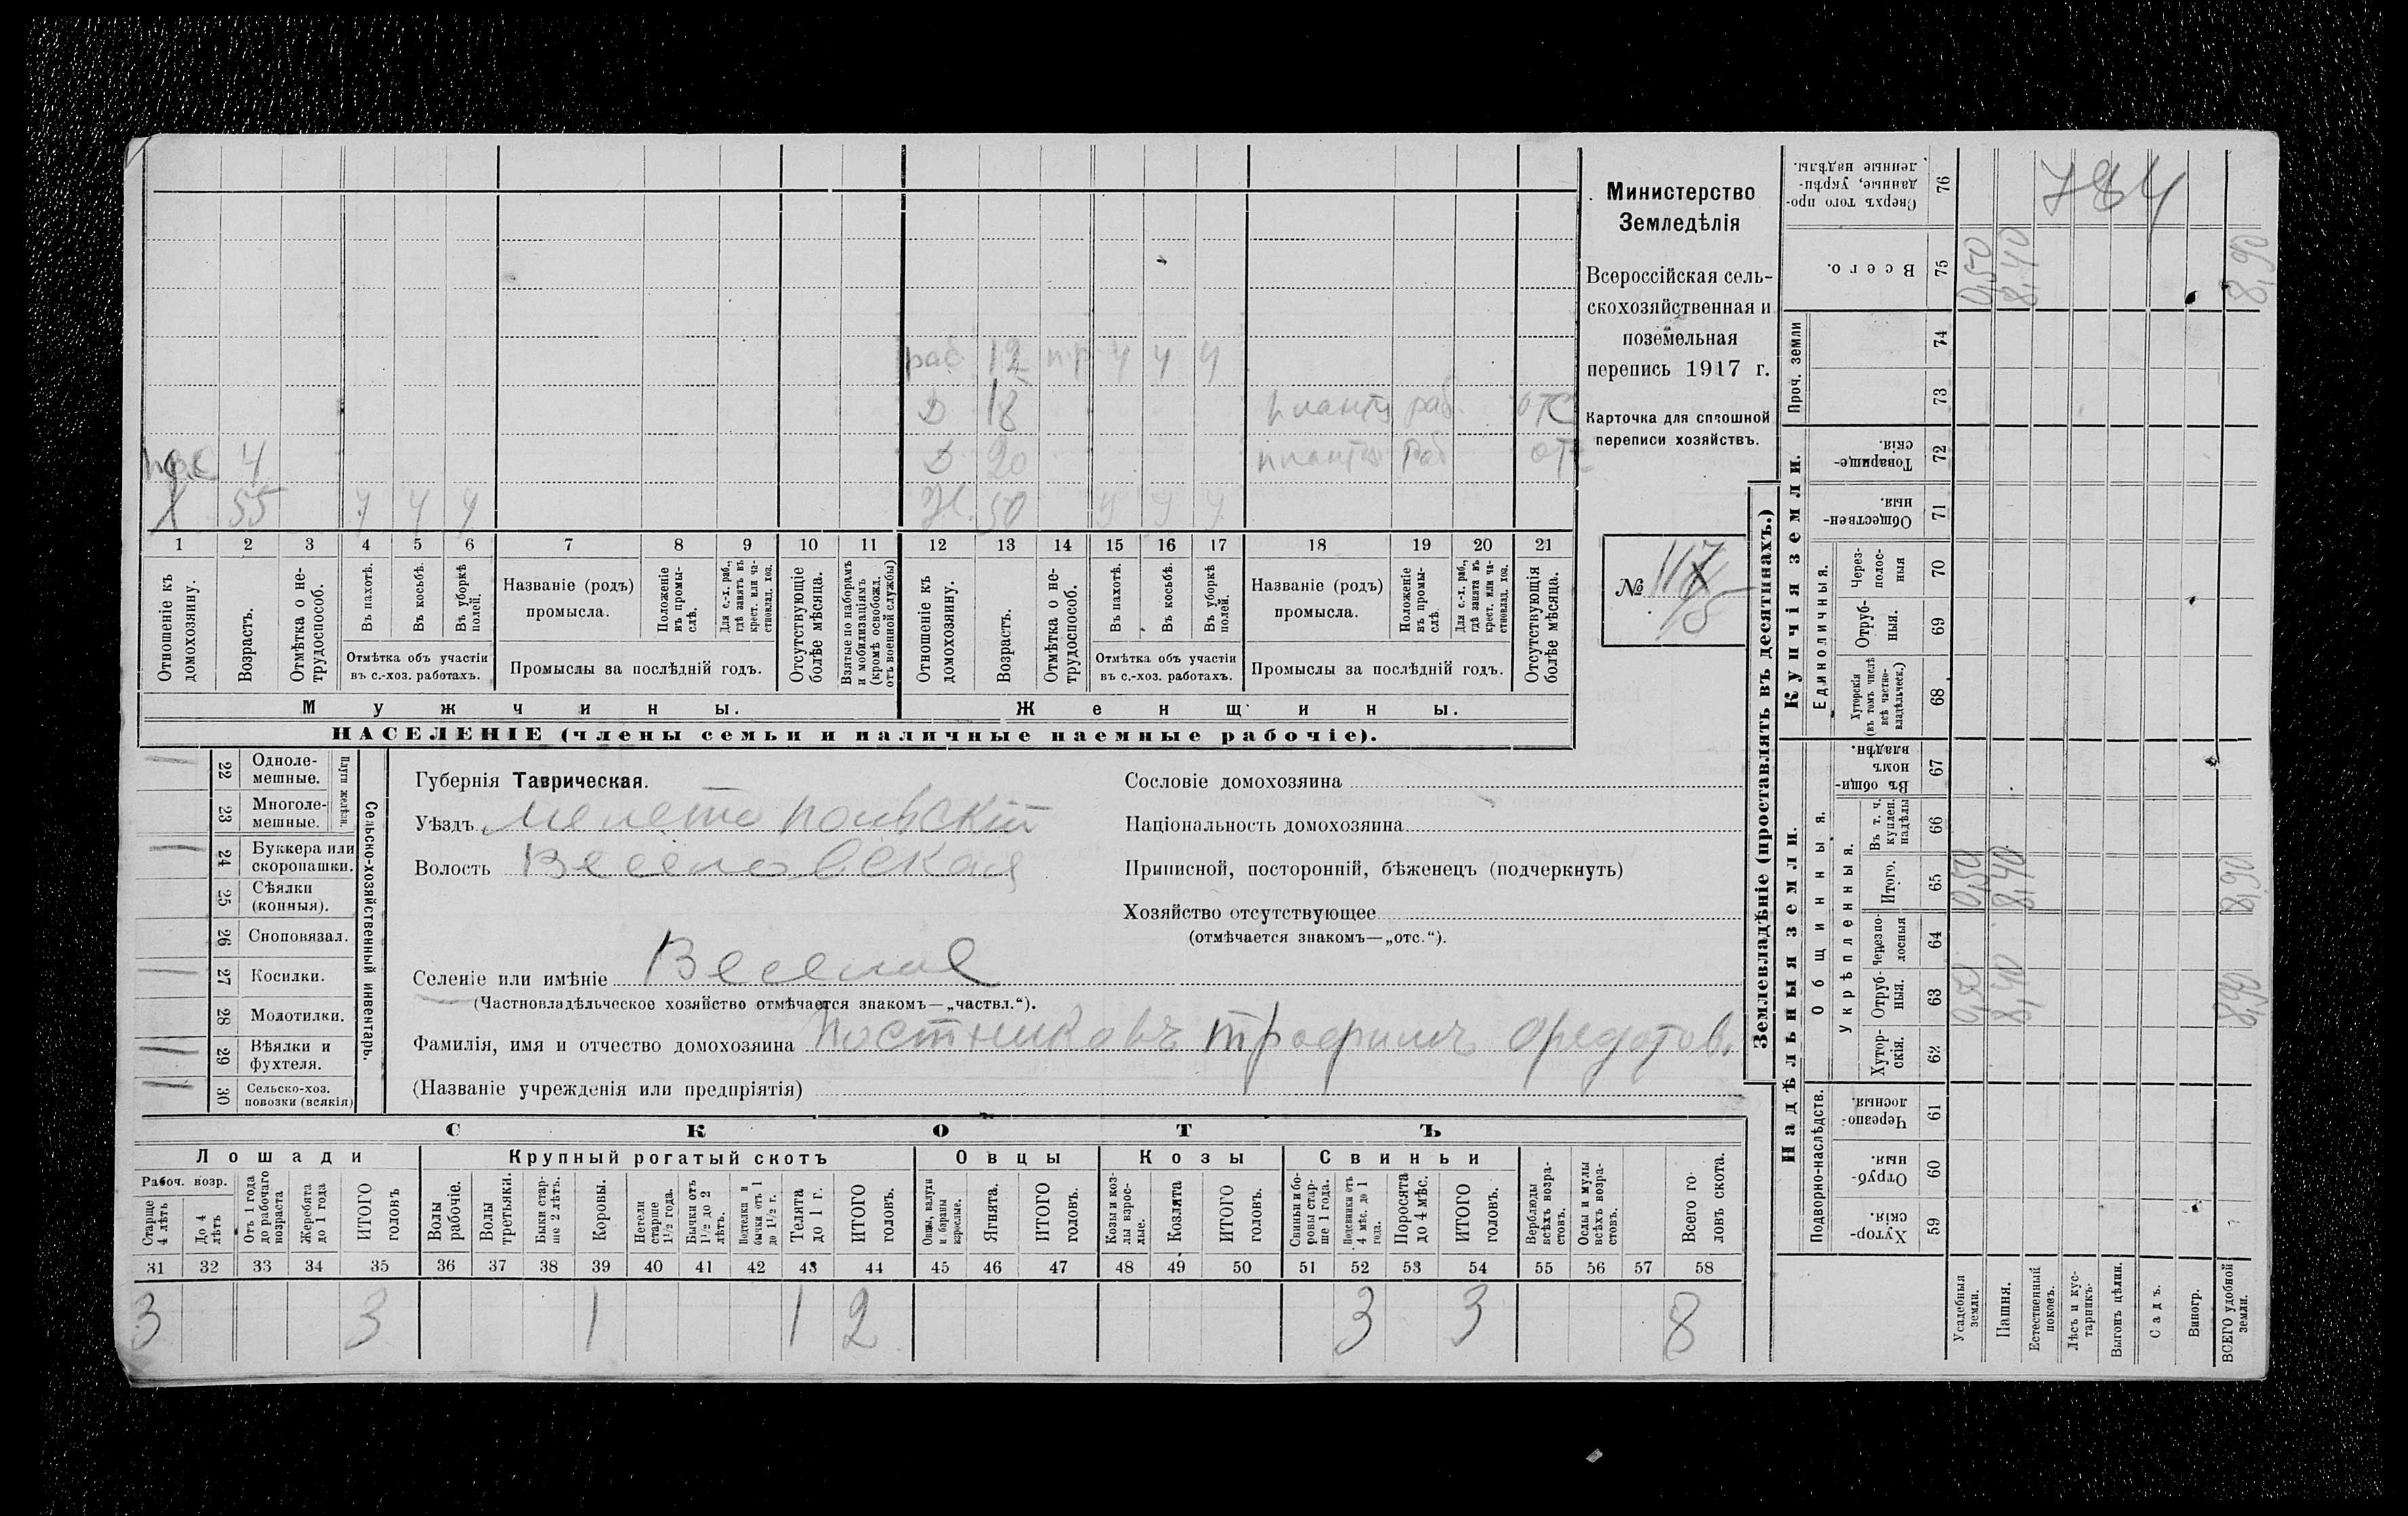 Министерство
Земледѣлія
Всероссійская сель-
скохозяйственная и
поземельная
перепись 1917 г.
Карточка для сплошной
переписи хозяйствъ.
№ 117
15
раб. 12 н.р. ч ч ч
Д 18 раб. отс
Д 20 раб отс
4
Х 55 ч ч ч Ж. 50 ч ч ч
1 2 3 4 5 6 7 8 9 10 11 12 13 14 15 16 17 18 19 20 21
Отношеніе къ домохозяину.
Возрастъ.
Отмѣтка о не-трудоспособ.
Въ пахотѣ.
Въ косьбѣ.
Въ уборкѣ полей.
Отмѣтка объ участіи въ с.-хоз. работахъ.
Названіе (родъ) промысла.
Положеніе въ промы-слѣ.
Для с.-х. раб., гдѣ занятъ въ крест. или ча-стновлад. хоз.
Промыслы за послѣдній годъ.
Отсутствующіе болѣе мѣсяца.
Взятые по наборамъ и мобилизаціямъ (кромѣ освобожл. отъ военной службы)
Отношеніе къ домохозяину.
Возрастъ.
Отмѣтка о не-трудоспособ.
Въ пахотѣ.
Въ косьбѣ.
Въ уборкѣ полей.
Отмѣтка объ участіи въ с.-хоз. работахъ.
Названіе (родъ) промысла.
Положеніе въ промы-слѣ.
Для с.-х. раб., гдѣ занята въ крест. или ча-стновлад. хоз.
Промыслы за послѣдній годъ.
Отсутствующія болѣе мѣсяца.
Мужчины. Женщины.
НАСЕЛЕНІЕ (члены семьи и наличные наемные рабочіе).
Сельско-хозяйственный инвентарь.
Плуги желѣзн.
22 Одноле-мешные.
23 Многоле-мешные.
24 Буккера или скоропашки.
25 Сѣялки (конныя).
26 Сноповязал.
27 Косилки.
28 Молотилки.
29 Вѣялки и фухтеля.
30 Сельско-хоз. повозки (всякія)
Губернія Таврическая.
Уѣздъ Мелитопольскій
Волость Веселовская
Селеніе или имѣніе Веселое
(Частновладѣльческое хозяйство отмѣчается знакомъ—„частвл.“).
Фамилія, имя и отчество домохозяина Постниковъ Трофимъ Федотов.
(Названіе учрежденія или предпріятія)
Сословіе домохозяина
Національность домохозяина
Приписной, посторонній, бѣженецъ (подчеркнуть)
Хозяйство отсутствующее
(отмѣчается знакомъ—„отс.“).
СКОТЪ
Лошади Крупный рогатый скотъ Овцы Козы Свиньи
Рабоч. возр.
Старше 4 лѣтъ
До 4 лѣтъ
Отъ 1 года до рабочаго возраста
Жеребята до 1 года
ИТОГО головъ
Волы рабочіе.
Волы третьяки.
Быки стар-ше 2 лѣтъ.
Коровы.
Нетели старше 1½ года.
Бычки отъ 1½ до 2 лѣтъ.
Подтелки и бычки отъ 1 до 1½ г.
Телята до 1 г.
ИТОГО головъ.
Овцы, валухи и бараны взрослые.
Ягнята.
ИТОГО головъ.
Козы и коз-лы взрос-лые.
Козлята
ИТОГО головъ.
Свиньи и бо-ровы стар-ше 1 года.
Подсвинки отъ 4 мѣс. до 1 года.
Поросята до 4 мѣс.
ИТОГО головъ.
Верблюды всѣхъ возра-стовъ.
Ослы и мулы всѣхъ возра-стовъ.
Всего го-ловъ скота.
31 32 33 34 35 36 37 38 39 40 41 42 43 44 45 46 47 48 49 50 51 52 53 54 55 56 57 58
3 3 1 1 2 3 3 8
Землевладѣніе (проставлять въ десятинахъ.)
Надѣльныя земли. Купчія земли. Проч. земли
Подворно-наслѣдств.
Общинныя.
Укрѣпленныя.
Единоличныя.
Хутор-скія. 59
Отруб-ныя. 60
Черезпо-лосныя. 61
Хутор-скія. 62
Отруб-ныя. 63
Черезпо-лосныя 64
Итого. 65
Въ т. ч. куплен. надѣлы 66
Въ общин-номъ владѣн. 67
Хуторскія (въ томъ числѣ всѣ частно-владѣльческ.) 68
Отруб-ныя. 69
Через-полос-ныя 70
Обществен-ныя. 71
Товарище-скія. 72
73
74
Всего. 75
Сверхъ того про-данные, укрѣп-ленные надѣлы. 76
784
Усадебныя земли. 0,50 0,50 0,50
Пашня. 8,40 8,40 8,40
Естественный покосъ.
Лѣсъ и кус-тарникъ.
Выгонъ цѣлин.
Садъ.
Виногр.
ВСЕГО удобной земли. 8,90 8,90 8,90